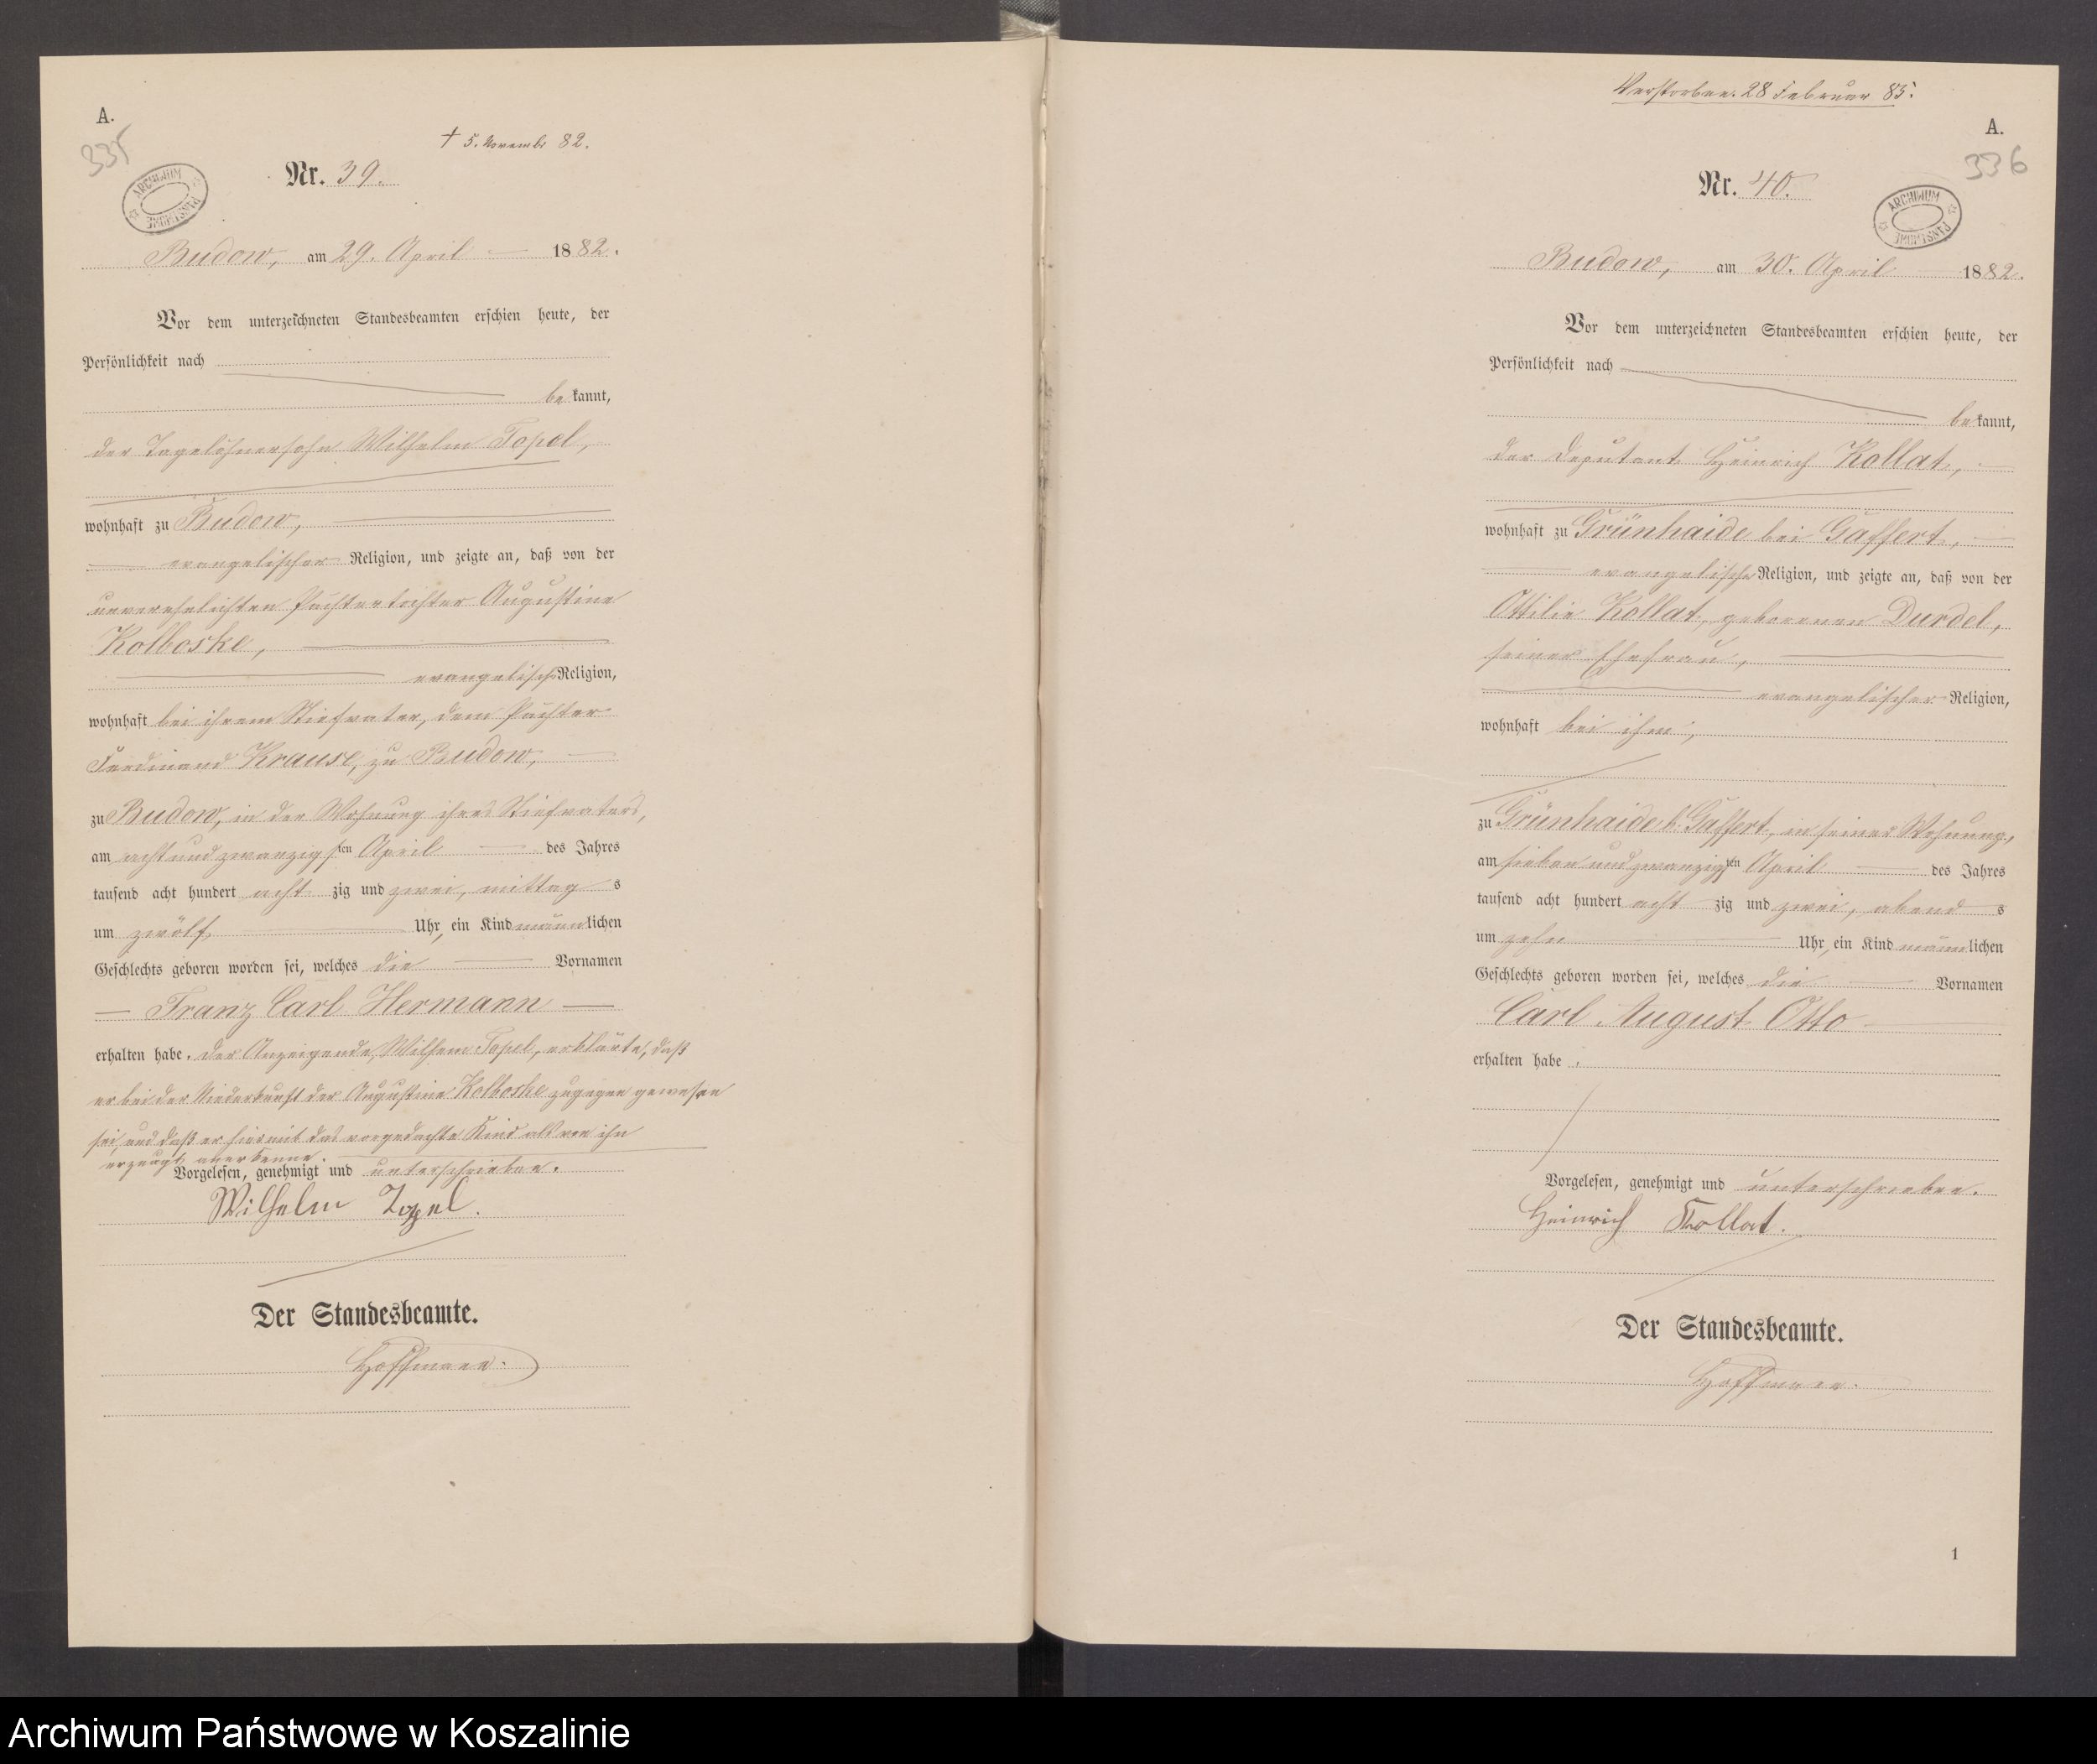 A.
335
† 5. Novembr 82.
Nr. 39.
ARCHIWUM
PAŃSTWOWE
Budow, am 29. April 1882.
Vor dem unterzeichneten Standesbeamten erschien heute, der
Persönlichkeit nach
bekannt,
der Tagelöhnersohn Wilhelm Topel,
wohnhaft zu Budow,
evangelischer Religion, und zeigte an, daß von der
unverehelichten Pächtertochter Augustine
Kolboske,
evangelisch Religion,
wohnhaft bei ihrem Stiefvater, dem Pächter
Ferdinand Krause, zu Budow,
zu Budow, in der Wohnung ihres Stiefvaters,
am acht und zwanzigsten April des Jahres
tausend acht hundert acht zig und zwei, mittags
um zwölf Uhr, ein Kind männlichen
Geschlechts geboren worden sei, welches die Vornamen
Franz Carl Hermann
erhalten habe. Der Anzeigende, Wilhem Topel, erklärte, daß
er bei der Niederkunft der Augustine Kolboske zugegen gewesen
sei, und daß er hiermit das vorgedachte Kind als von ihn
erzeugt anerkenne.
Vorgelesen, genehmigt und unterschrieben.
Wilhelm Topel.
Der Standesbeamte.
Hoffmann.
Verstorben: 28 Februar 85.
A.
336
Nr. 40.
ARCHIWUM
PAŃSTWOWE
Budow, am 30. April 1882.
Vor dem unterzeichneten Standesbeamten erschien heute, der
Persönlichkeit nach
bekannt,
der Deputant Heinrich Kollat,
wohnhaft zu Grünhaide bei Gaffert,
evangelische Religion, und zeigte an, daß von der
Ottilie Kollat, geborenen Durdel,
seiner Ehefrau,
evangelischer Religion,
wohnhaft bei ihm,
zu Grünhaide b. Gaffert, in seiner Wohnung,
am sieben und zwanzigsten April des Jahres
tausend acht hundert acht zig und zwei, abends
um zehn Uhr, ein Kind männlichen
Geschlechts geboren worden sei, welches die Vornamen
Carl August Otto
erhalten habe.
Vorgelesen, genehmigt und unterschrieben.
Heinrich Kollat.
Der Standesbeamte.
Hoffmann.
1
Archiwum Państwowe w Koszalinie